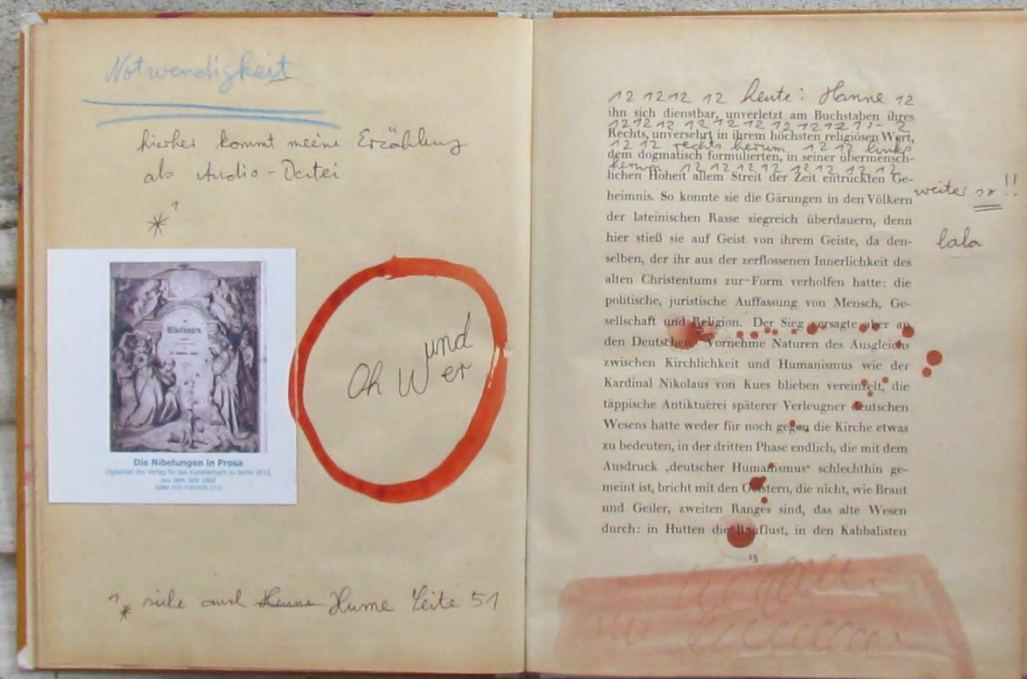 Notwendigkeit
hierher kommt meine Erzählung
als Audio-Datei
*¹
Die
Nibelungen.
Die Nibelungen in Prosa
aus dem Jahr
Oh Wund
er
¹* siehe auch Hanne Hume Seite 51
12 12 12 12 heute: Hanne 12
ihn sich dienstbar, unverletzt am Buchstaben ihres
12 12 12 12 12 12 12 12 12
Rechts, unversehrt in ihrem höchsten religiösen Wert,
12 12 rechts herum 12 12 links
dem dogmatisch formulierten, in seiner übermensch-
herum 12 12 12 12 12 12 12
lichen Hoheit allem Streit der Zeit entrückten Ge-
weiter so!!
heimnis. So konnte sie die Gärungen in den Völkern
der lateinischen Rasse siegreich überdauern, denn
lala
hier stieß sie auf Geist von ihrem Geiste, da den-
selben, der ihr aus der zerflossenen Innerlichkeit des
alten Christentums zur Form verholfen hatte: die
politische, juristische Auffassung von Mensch, Ge-
sellschaft und Religion. Der Sieg versagte aber an
den Deutschen. Vornehme Naturen des Ausgleichs
zwischen Kirchlichkeit und Humanismus wie der
Kardinal Nikolaus von Kues blieben vereinzelt, die
täppische Antiktuerei späterer Verleugner deutschen
Wesens hatte weder für noch gegen die Kirche etwas
zu bedeuten, in der dritten Phase endlich, die mit dem
Ausdruck „deutscher Humanismus“ schlechthin ge-
meint ist, bricht mit den Geistern, die nicht, wie Brant
und Geiler, zweiten Ranges sind, das alte Wesen
durch: in Hutten die Rauflust, in den Kabbalisten
15